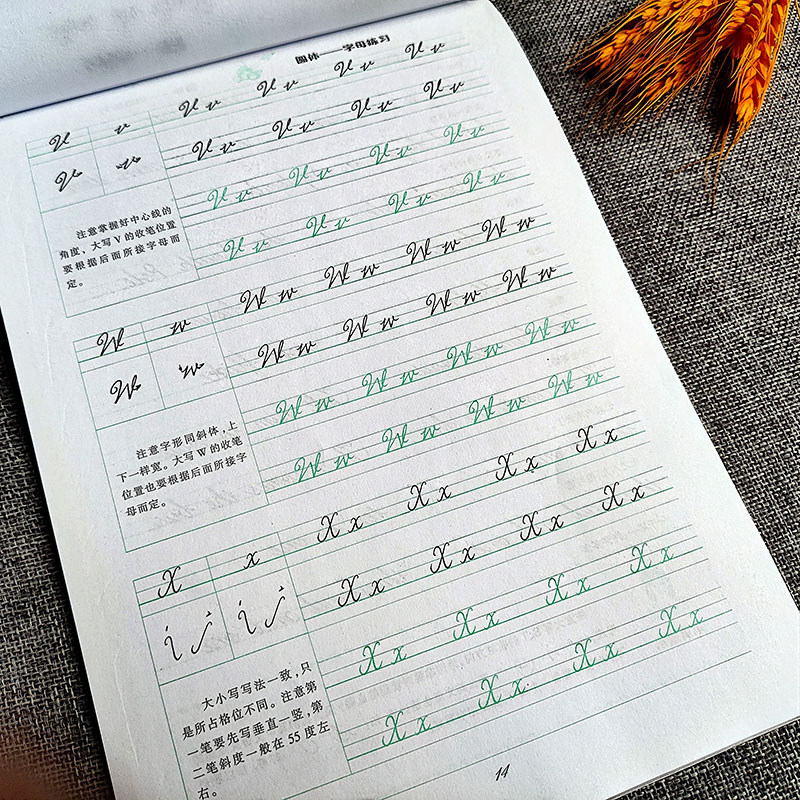 圆体——字母练习
V v V v V v V v V v
V v V v V v V v V v
V v V v V v V v
V v V v V v V v
注意掌握好中心线的
角度、大写 V 的收笔位置
要根据后面所接字母而
定。
W w W w W w W w W w
W w W w W w W w W w
W w W w W w W w
W w W w W w W w
注意字形同斜体，上
下一样宽。大写 W 的收笔
位置也要根据后面所接字
母而定。
X x X x X x X x X x
X x X x X x X x
X x X x X x X x
X x X x X x X x
大小写写法一致，只
是所占格位不同。注意第
一笔要先写垂直一竖，第
二笔斜度一般在 55 度左
右。
14